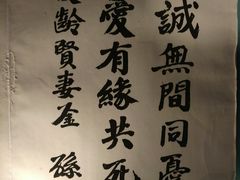 誠無間同憂
愛有緣共死
齡賢妻荃 孫